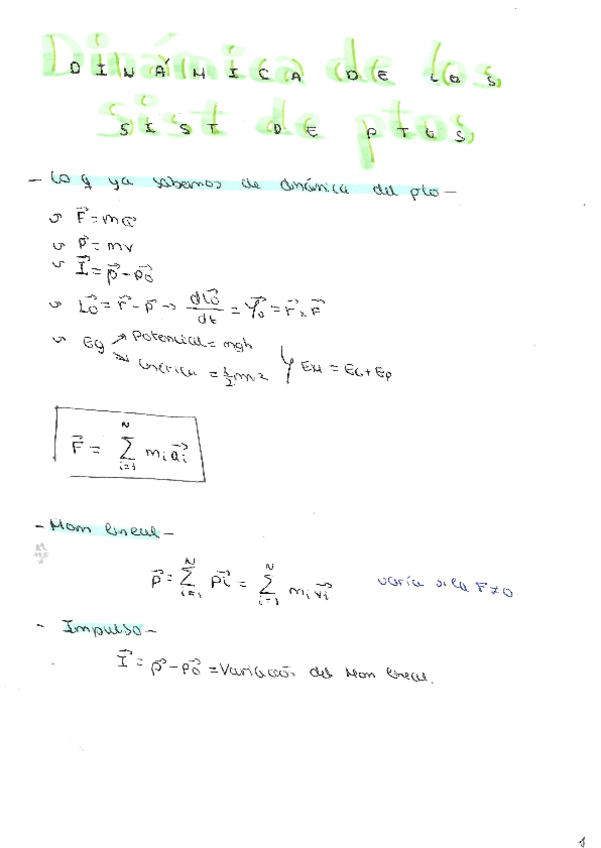 DINÁMICA DE LOS
SIST DE PTOS
- Lo q ya sabemos de dinámica del pto -
F⃗ = ma⃗
P⃗ = mv
I⃗ = p⃗ - p⃗₀
L⃗o = r⃗ - p⃗ → dL⃗o/dt = r⃗ x F⃗
Potencial = mgh
Eg
Cinética = ½mv² } EM = Ec + Ep
F⃗ = Σ_{i=1}^{N} mᵢa⃗ᵢ
- Mom lineal -
P⃗ = Σ_{i=1}^{N} p⃗ᵢ = Σ_{i=1}^{N} mᵢv⃗ᵢ varía si la F ≠ 0.
- Impulso -
I⃗ = p⃗ - p⃗₀ = Variación del Mom lineal.
1